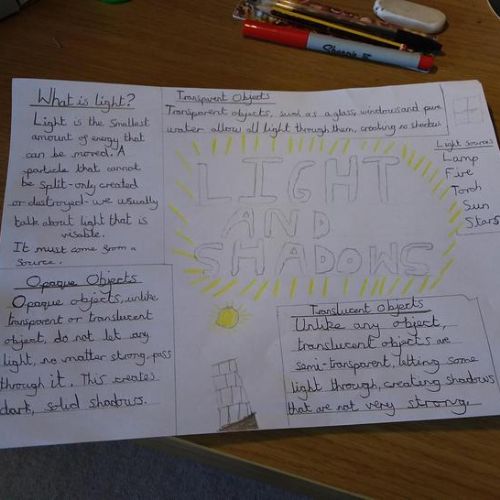 Sharpie
What is light?
Light is the smallest
amount of energy that
can be moved. A
particle that cannot
be split-only created
or destroyed-we usually
talk about light that is
visable.
It must come from a
source.
Transparent Objects
Transparent objects, such as a glass, windows and pure
water allow all light through them, creating no shadows
Light Sources
Lamp
Fire
Torch
Sun
Stars
LIGHT
AND
SHADOWS
Opaque Objects
Opaque objects, unlike
transparent or translucent
object, do not let any
light, no matter strong pass
through it. This creates
dark, solid shadows.
Translucent Objects
Unlike any object,
translucent objects are
semi-transparent, letting some
light through, creating shadows
that are not very strong.